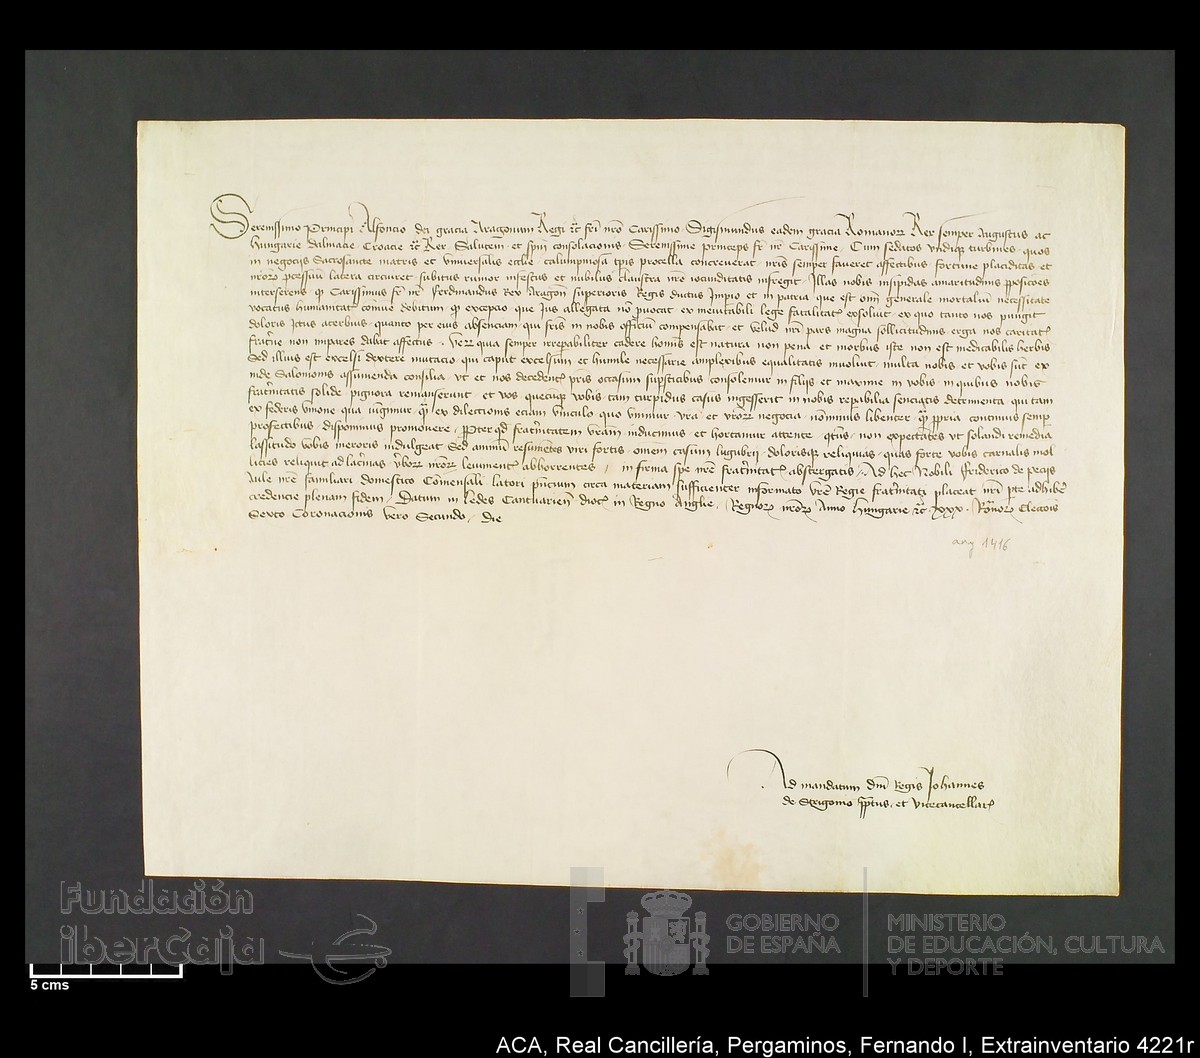 Serenissimo Principi Alfoncio dei gracia Aragonum Regi etc fri nro Carissimo Sigismundus eadem gracia Romanorum Rex semper Augustus ac
Hungarie Dalmacie Croacie etc Rex Salutem et consolacionis Serenissime princeps fr nr Carissime Cum sedatos undiqz turbines quos
in negociis Sacrosancte matris et Universalis ecclie calumpniosa tpis procella concreverat nris semper faveret affectibus fortune placiditas et
nrorum latera circuiret subitus rumor infestus et nubilus claustra nre iocunditatis infregit Illas nobis insipidas amaritudinis
interserens qz Carissimus fr nr Ferdinandus Rex Aragon superioris Regis ductus Impio et in patria que est omni generale mortalium necessitate
vocatus humanitat comune debitum qz excepcio que Ius allegata no puocat ex inevitabili lege fatalitat exsoluit ex quo tanto nos pungit
doloris Ictus acerbius quanto per eius absenciam qui fris in nobis officium compensabat et velud nri pars magna sollicitudinis erga nos caritat
frat'ne non impares dabat affectus Verum quia semper irrepabiliter cadere hominis est natura non pena et morbus iste non est medicabilis herbis
Sed illius est excelsi dextere mutacio qui caput excelsum et humile necessarie amplexibus equalitatis involuit multa nobis et vobis sunt ex
inde Salomonis assumenda consilia ut et nos decedent pris occasum supstitibus consolemur in filijs et maxime in vobis in quibus nobis
frat'nitatis solide pignora remanserunt et vos quecumqz vobis tam turpidus casus ingesserit in nobis repabilia senciatis detrimenta qui tam
ex federis unione qua iungimur qz ex dilectionis eciam vinculo quo unimur vra et vrorum negocia nominus libenter qz ppria continuis semp
profectibus disponimus promovere Ppter qd frat'nitatem vram inducimus et hortamur attente qtus non expectetis ut solandi remedia
lassitudo vobis meroris indulgeat Sed animum resumentes viri fortis omem casum lugubrem dolorisqz reliquias quas forte vobis carnalis mol
licies reliquit ad lacrimas vborum nrorum leniment abhorrentes in firma spe nre frat'nitat abstergatis Ad hec Nobili Friderico de pecijs
Aule nre familiari domestico Comensali latori pncium circa materiam sufficienter informato vre Regie frat'nitati placeat nri pte adhibe
credencie plenam fidem Datum in Ledes Cantuarien dioc in Regno Anglie Regnorum nrorum Anno Hungarie etc xxx Romorum Eleccois
Sexto Coronacionis vero Secundo die
any 1416
Ad mandatum dni Regis Johannes
de Strigonio pptus et vicecancellar
Fundación
iberCaja
GOBIERNO
DE ESPAÑA
MINISTERIO
DE EDUCACIÓN, CULTURA
Y DEPORTE
5 cms
ACA, Real Cancillería, Pergaminos, Fernando I, Extrainventario 4221r